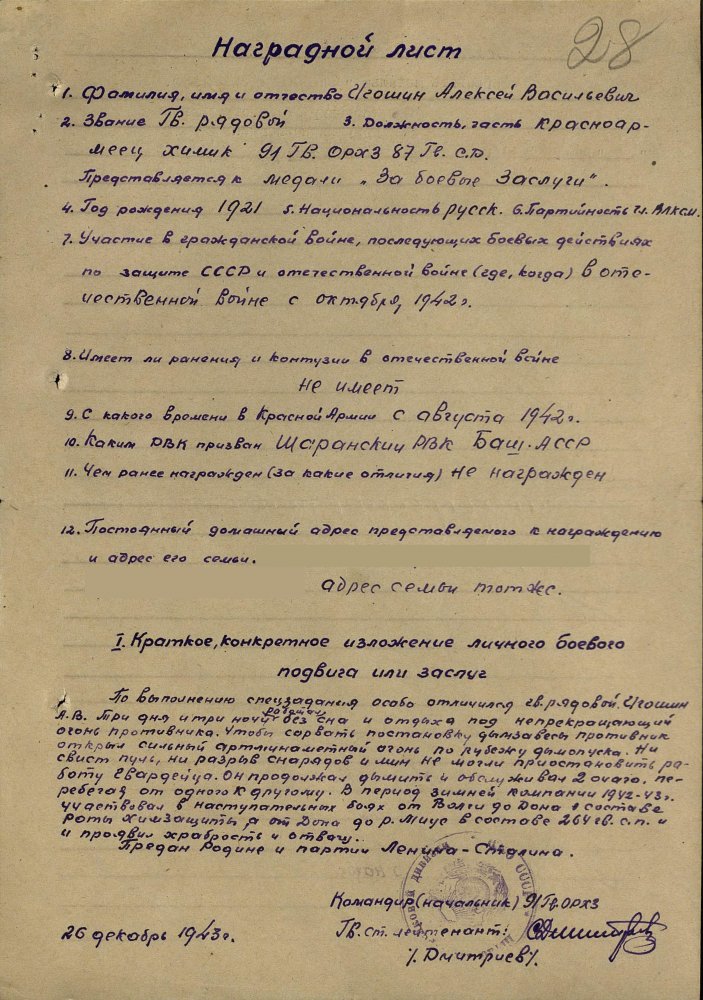 Наградной лист
28
1. Фамилия, имя и отчество Игошин Алексей Васильевич
2. Звание Гв. рядовой 3. Должность, часть красноар-
меец химик 91 Гв. ОРХЗ 87 Гв. с.д.
Представляется к медали „За боевые заслуги".
4. Год рождения 1921 5. Национальность русск. 6. Партийность чл. ВЛКСМ.
7. Участие в гражданской войне, последующих боевых действиях
по защите СССР и отечественной войне (где, когда) в оте-
чественной войне с октября, 1942 г.
8. Имеет ли ранения и контузии в отечественной войне
не имеет
9. С какого времени в Красной Армии с августа 1942 г.
10. Каким РВК призван Шаранский РВК Баш. АССР
11. Чем ранее награжден (за какие отличия) не награжден
12. Постоянный домашный адрес представляемого к награждению
и адрес его семьи.
адрес семьи тотже.
I. Краткое, конкретное изложение личного боевого
подвига или заслуг
По выполнению спецзадания особо отличился гв. рядовой Игошин
А.В. Три дня и три ночи работал без сна и отдыха под непрекращающий
огонь противника. Чтобы сорвать постановку дымзавесы противник
открыл сильный артминометный огонь по рубежу дымопуска. Ни
свист пуль, ни разрыв снарядов и мин не могли приостановить ра-
боту гвардейца. Он продолжал дымить и обслуживал 2 очага, пе-
ребегая от одного к другому. В период зимней компании 1942-43 г.
участвовал в наступательных боях от Волги до Дона в составе
роты химзащиты, а от Дона до р. Миус в составе 264 гв. с.п. и
и проявил храбрость и отвагу.
Предан Родине и партии Ленина-Сталина.
Командир (начальник) 91 Гв. ОРХЗ
26 декабрь 1943 г. Гв. ст. лейтенант:
/. Дмитриев/.